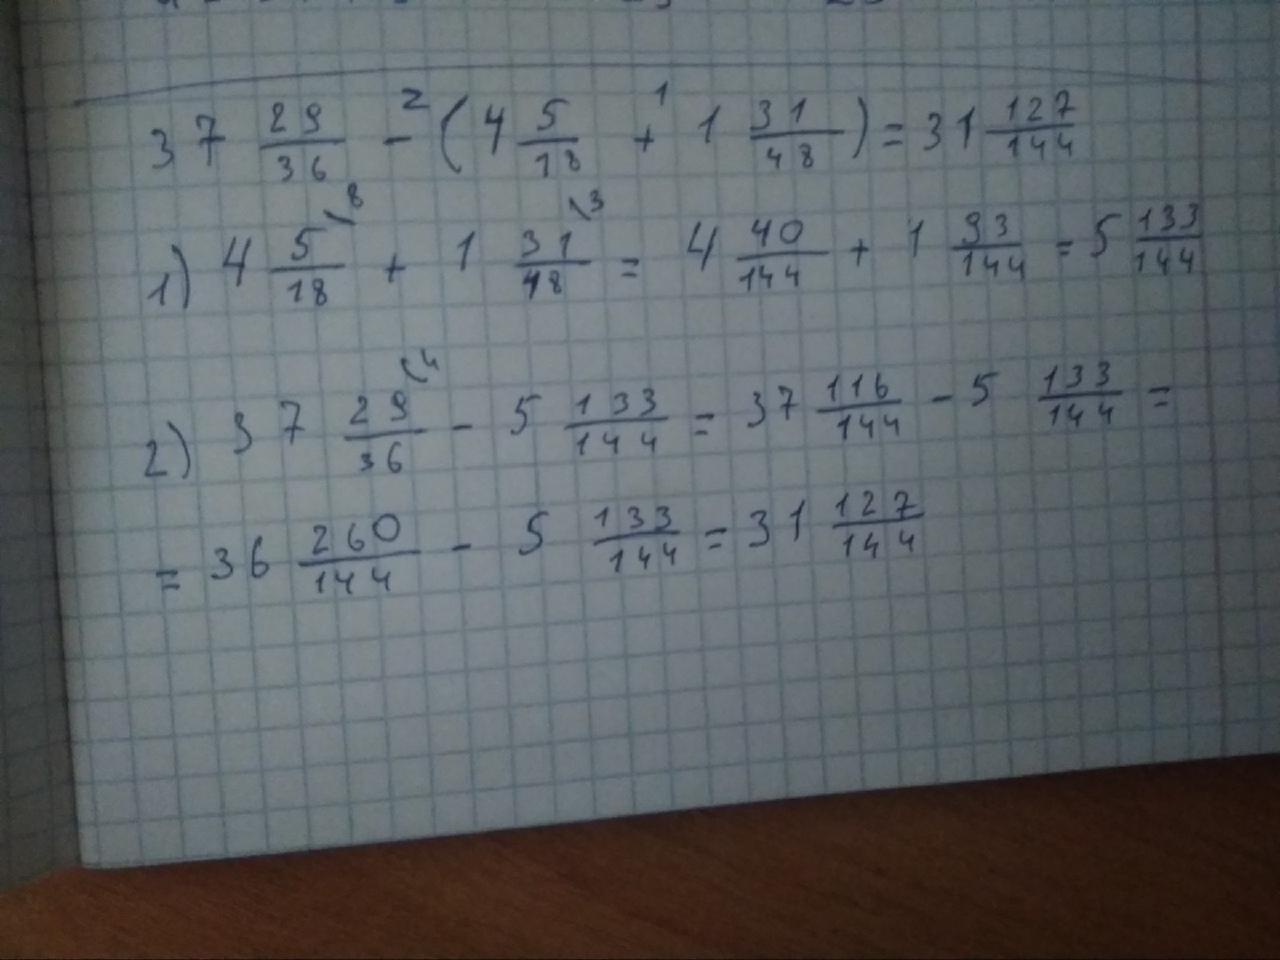 37 29/36 -² (4 5/18 +¹ 1 31/48) = 31 127/144
1) 4 5/18 \8 + 1 31/48 \3 = 4 40/144 + 1 93/144 = 5 133/144
2) 37 29/36 \4 - 5 133/144 = 37 116/144 - 5 133/144 =
= 36 260/144 - 5 133/144 = 31 127/144